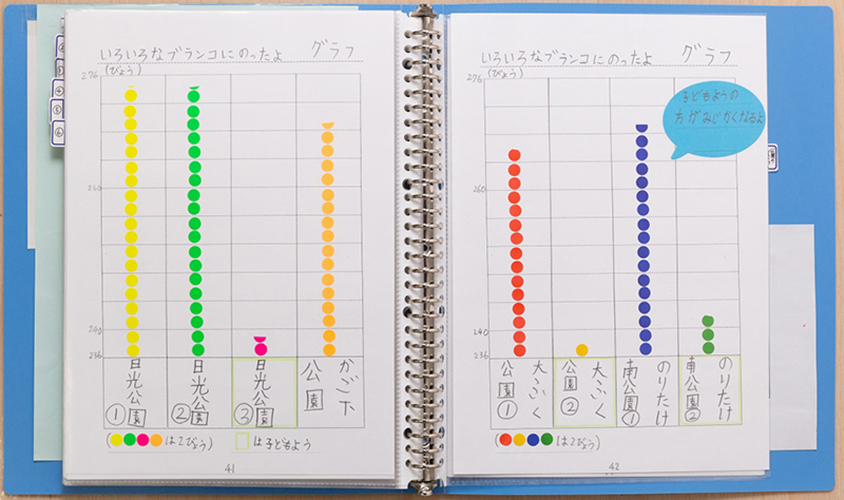 いろいろなブランコにのったよ グラフ
(びょう)
276
260
240
236
日光公園①
日光公園②
日光公園③
かご下公園
( はこびょう)
は子どもよう
41
いろいろなブランコにのったよ グラフ
(びょう)
276
子どもようの
方がみじかくなるよ
260
240
236
大こく公園①
大こく公園②
のりたけ南公園①
のりたけ南公園②
( は2びょう)
42
④
⑤
⑥